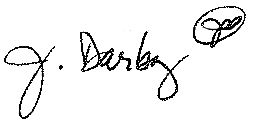 J. Darby